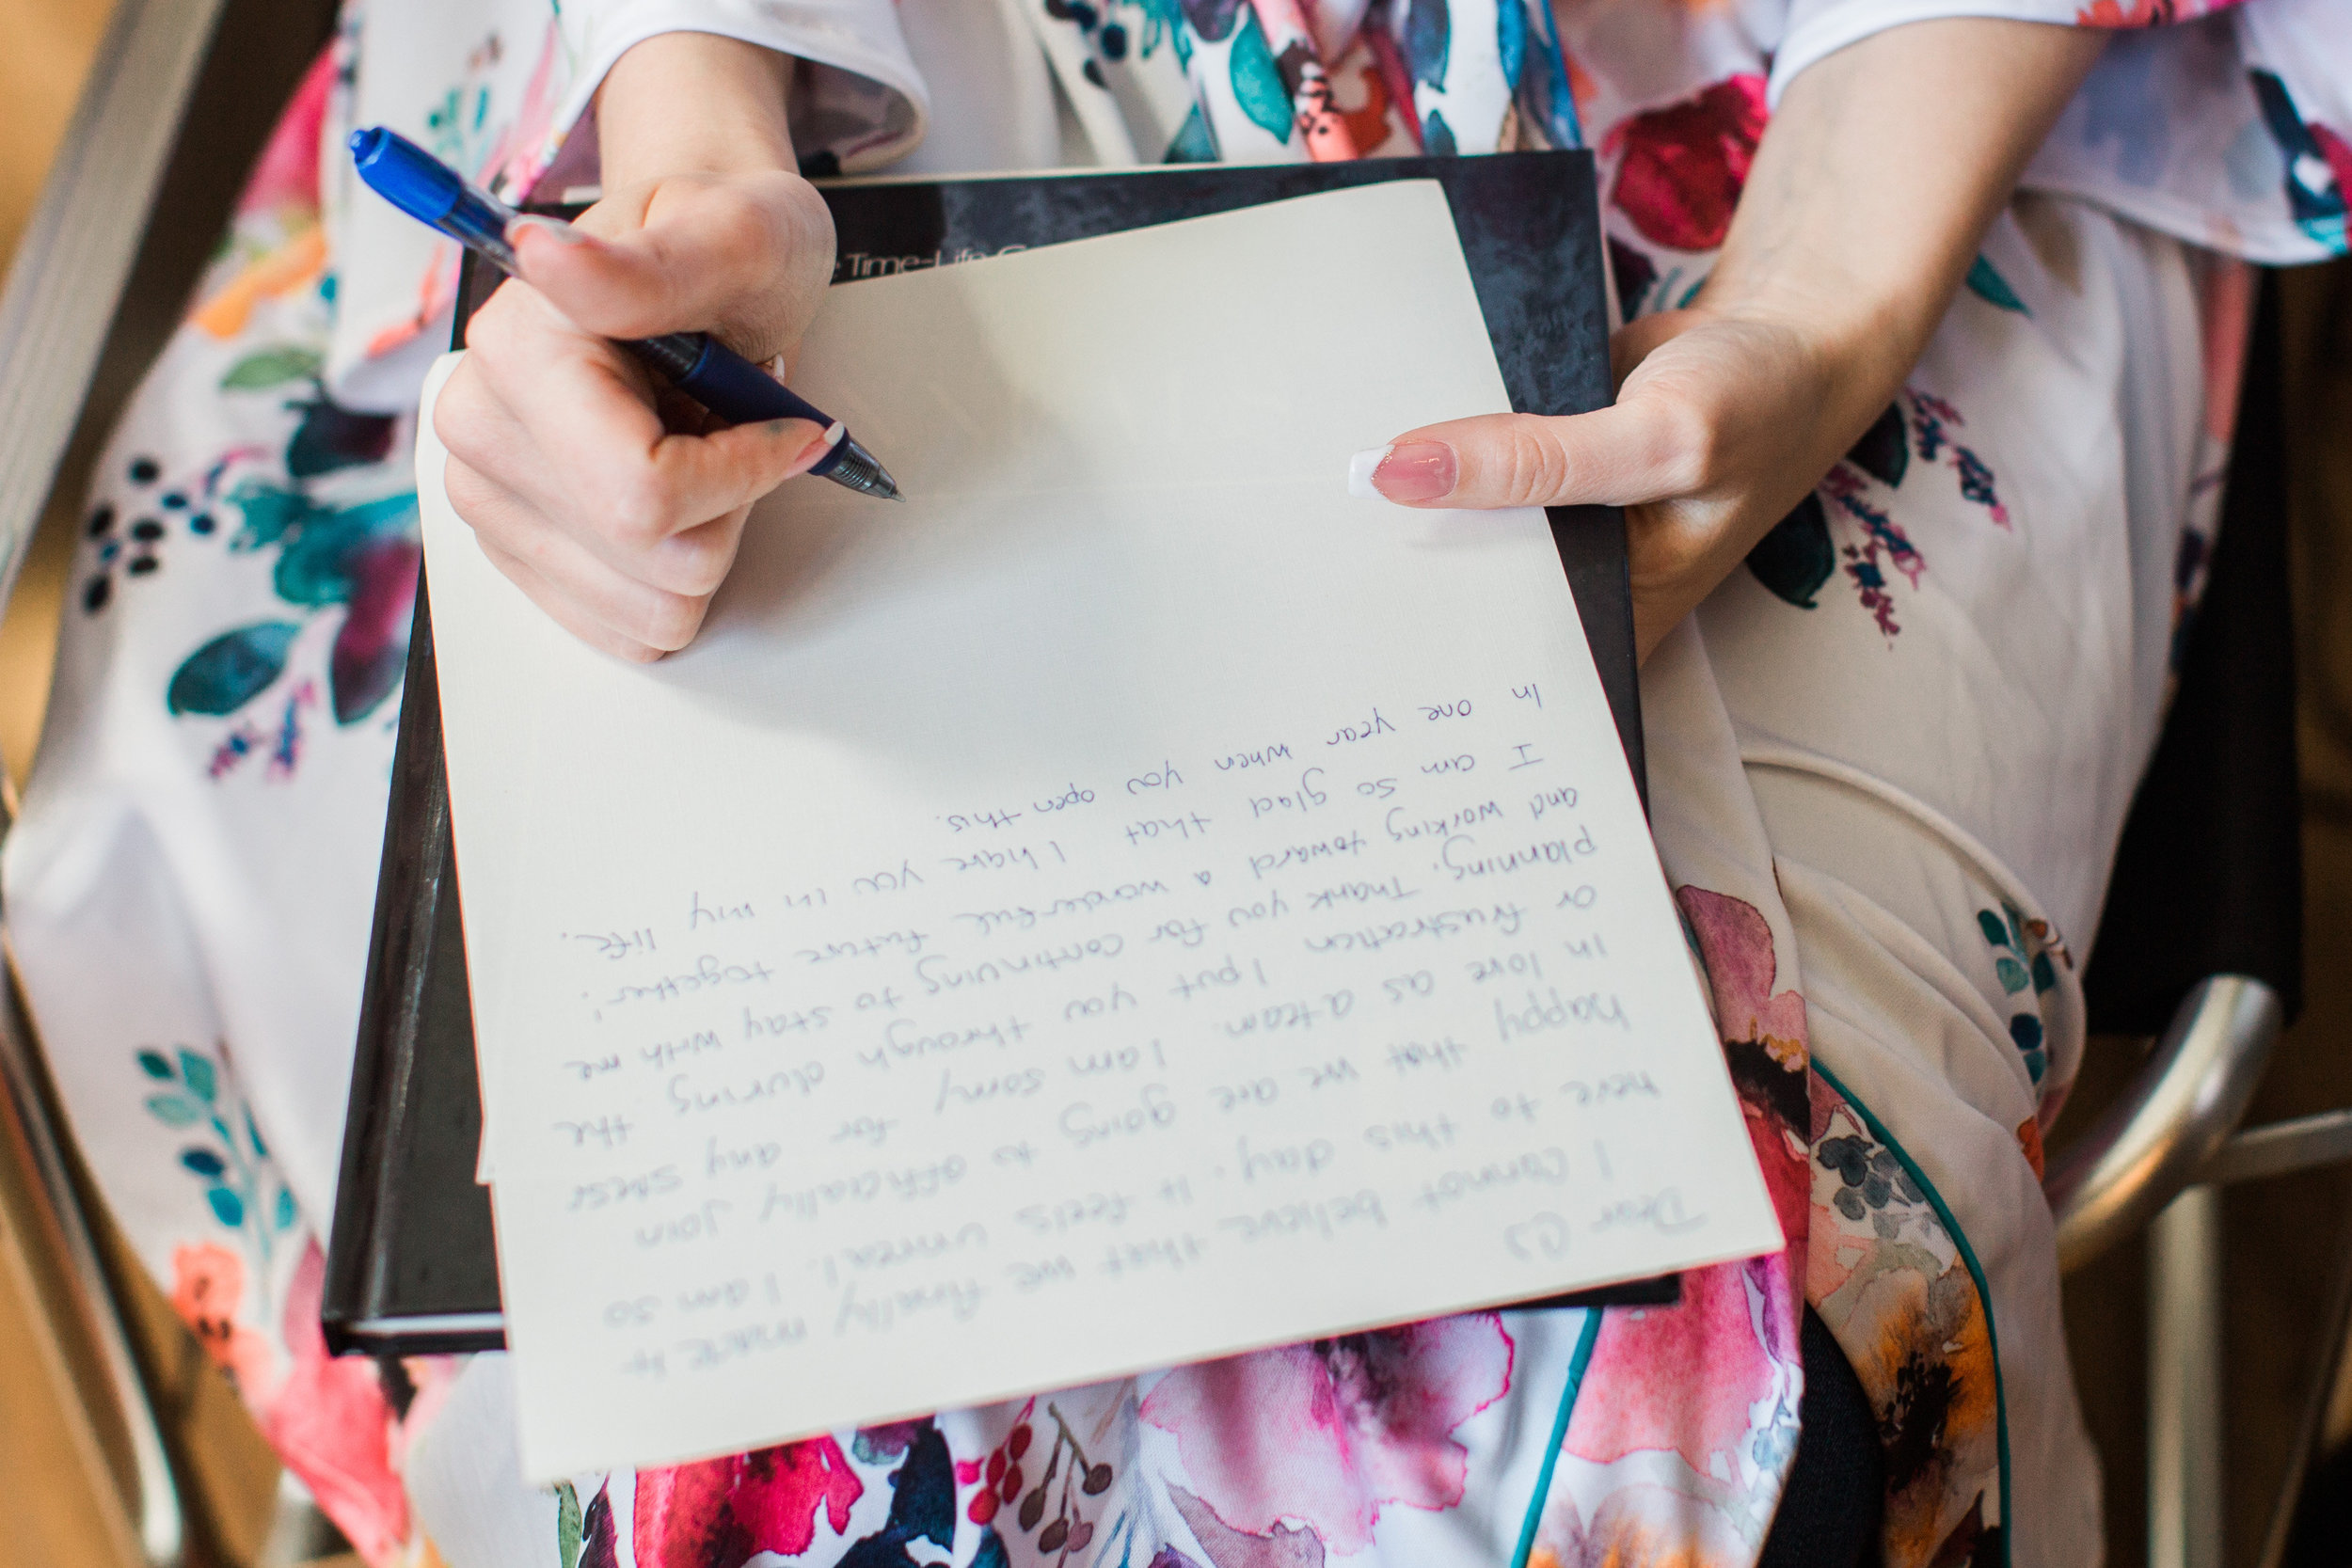 Time-Life
Dear CJ
I cannot believe that we finally made it
here to this day. It feels unreal. I am so
happy that we are going to officially join
in love as a team. I am sorry for any stress
or frustration I put you through during the
planning. Thank you for continuing to stay with me
and working toward a wonderful future together.
I am so glad that I have you in my life.
In one year when you open this.